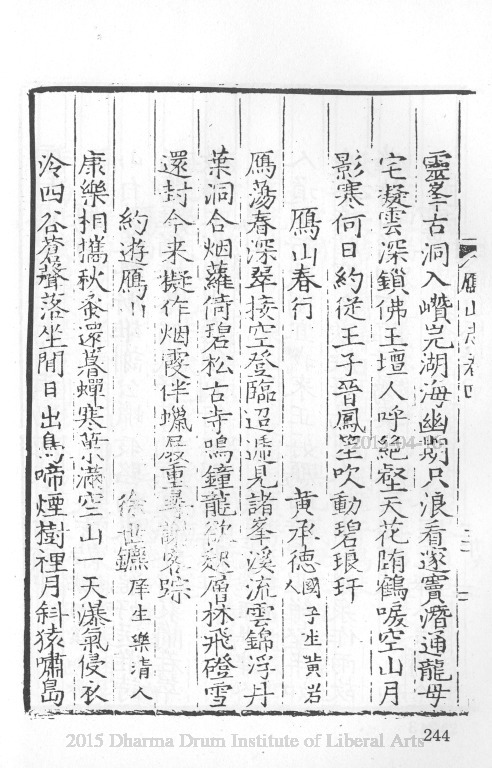 鴈山志卷四
靈峯古洞入巑岏湖海幽期只浪看邃竇潛通龍母
宅凝雲深鎖佛王壇人呼絕壑天花隋鶴唳空山月
影寒何日約從王子晉鳳笙吹動碧琅玕
鴈山春行 黃承德國子生黃岩人
鴈蕩春深翠接空登臨迢遞見諸峯溪流雲錦浮丹
葉洞合烟蘿倚碧松古寺鳴鐘龍欲起層林飛磴雪
還封今来擬作烟霞伴蠟屐重尋謝客踪
約遊鴈山 徐世鑣庠生樂清人
康樂相攜秋蚤還暮蟬寒葉滿空山一天瀑氣侵衣
冷四谷蒼聲落坐閒日出鳥啼煙樹裡月斜猿嘯島
244
2015 Dharma Drum Institute of Liberal Arts